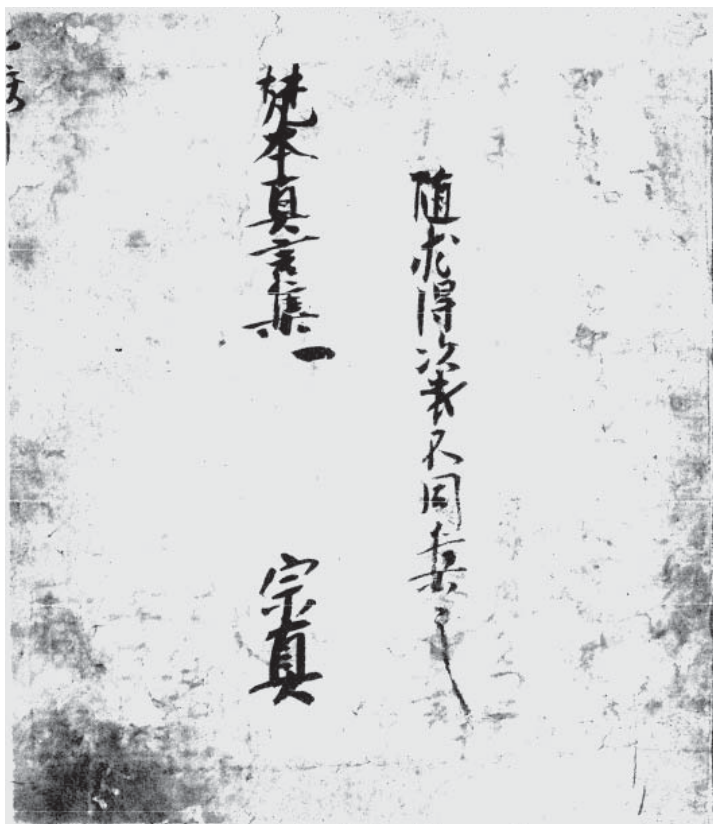 随求得次第不同集之
梵本真言集一
宗真